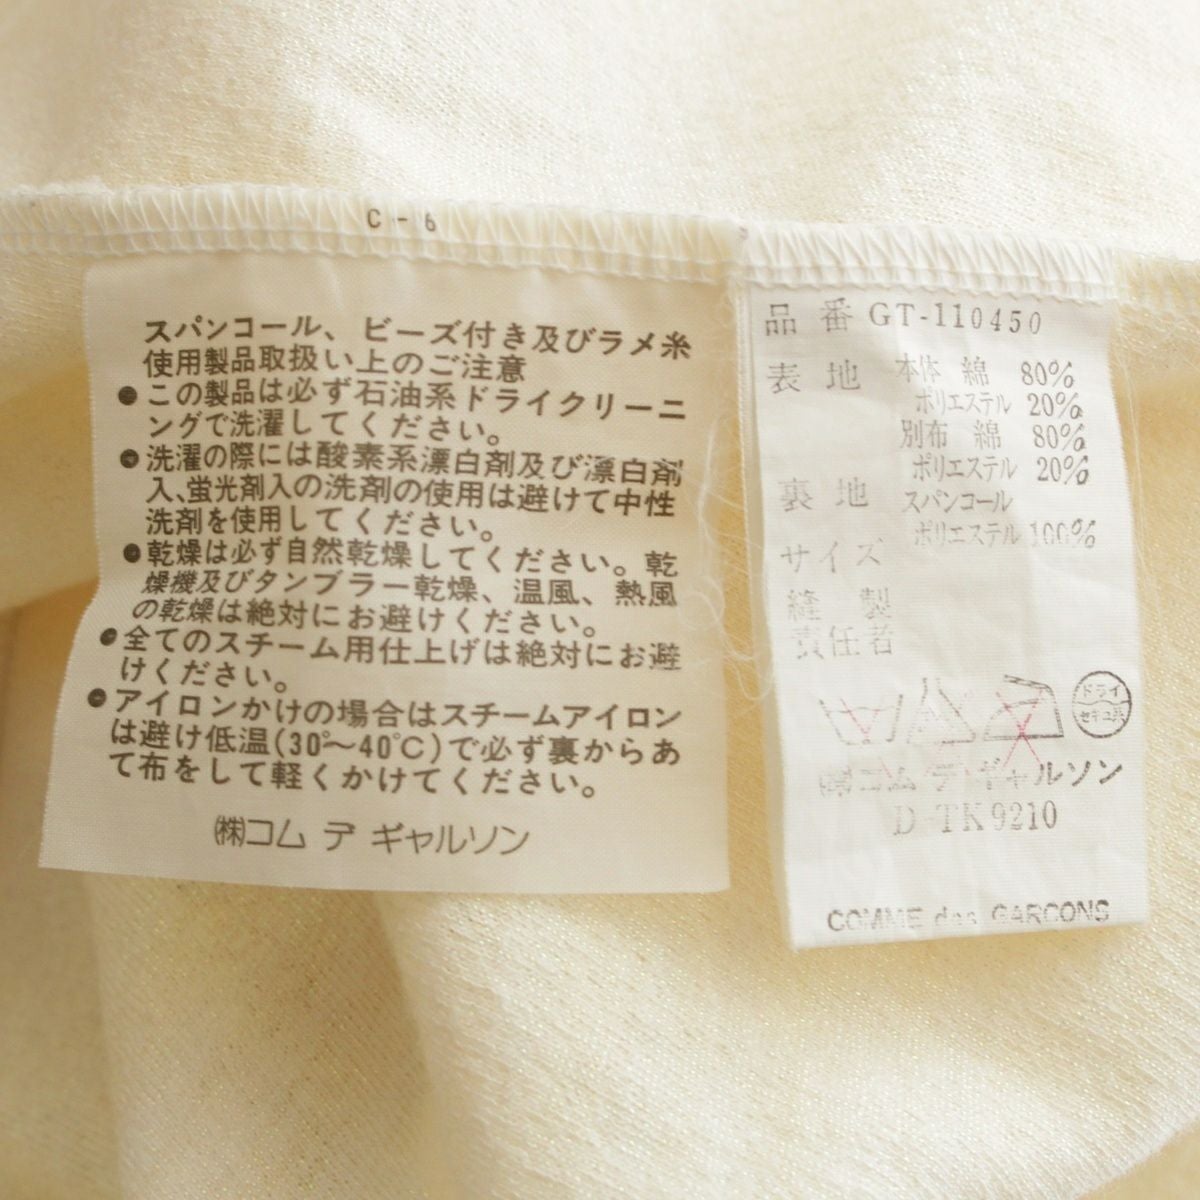 C-6
スパンコール、ビーズ付き及びラメ糸
使用製品取扱い上のご注意
●この製品は必ず石油系ドライクリーニ
ングで洗濯してください。
●洗濯の際には酸素系漂白剤及び漂白剤
入、蛍光剤入の洗剤の使用は避けて中性
洗剤を使用してください。
●乾燥は必ず自然乾燥してください。乾
燥機及びタンブラー乾燥、温風、熱風
の乾燥は絶対にお避けください。
●全てのスチーム用仕上げは絶対にお避
けください。
●アイロンかけの場合はスチームアイロン
は避け低温(30°〜40℃)で必ず裏からあ
て布をして軽くかけてください。
㈱コム デ ギャルソン
品番 GT-110450
表地 本体 綿 80%
ポリエステル 20%
別布 綿 80%
ポリエステル 20%
裏地 スパンコール
ポリエステル 100%
サイズ
縫製
責任者
ドライ
セキユ系
㈱コム デ ギャルソン
D TK9210
COMME des GARCONS